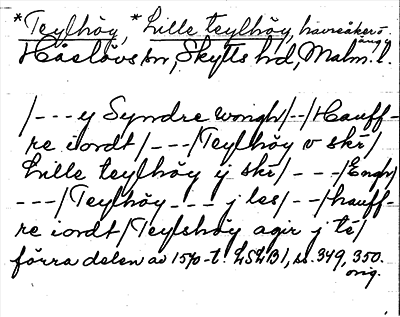 *Teylhöy, *Lille teylhöy, havreåker o. äng i
Håslövs sn, Skytts hd, Malm. l.
/---y Syndre wongh/--/Hauff-
re iordt/---/Teylhöy v skr/
Lille teylhöy y skr/---/Engh/
---/Teylhöy--- j les/--/hauff-
re iordt/Teylshöy agir j té/
förra delen av 1570-t. LSLB1, ss. 349, 350.
orig.